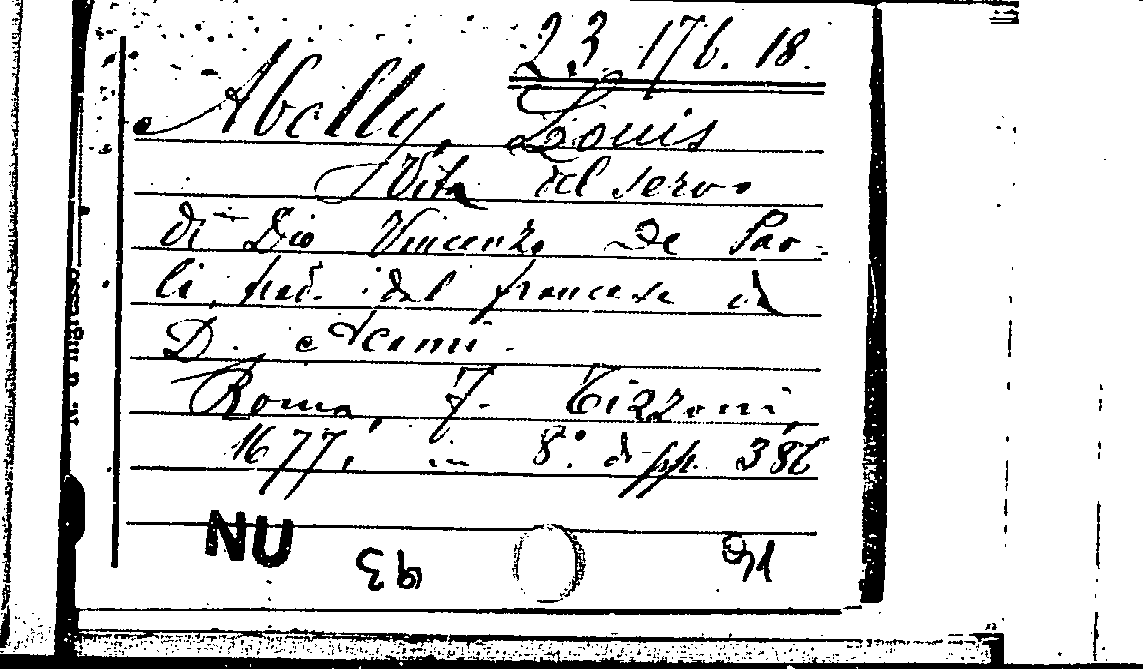 23. 176. 18.
Abelly, Louis
Vita del servo
di Dio Vincenzo De Pao-
li, trad. dal francese da
D. Acami.
Roma, F. Tizzoni,
1677, in 8º. di pp. 386
NU
93
N. d'ingresso